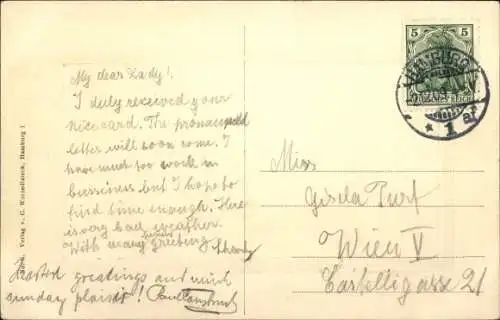 My dear Lady!
I duly received your
nice card. The
letter will soon come. I
have much too work in
bussiness but I hope to
find time enough. Here
is very bad weather.
With many greeting
Hearted greetings and much
sunday plaisir!
Miss
Gisela Turf
Wien V
Castelligasse 21
5 5
HAMBURG
* 1 a
Verlag v. C. Worzedialeck, Hamburg 1